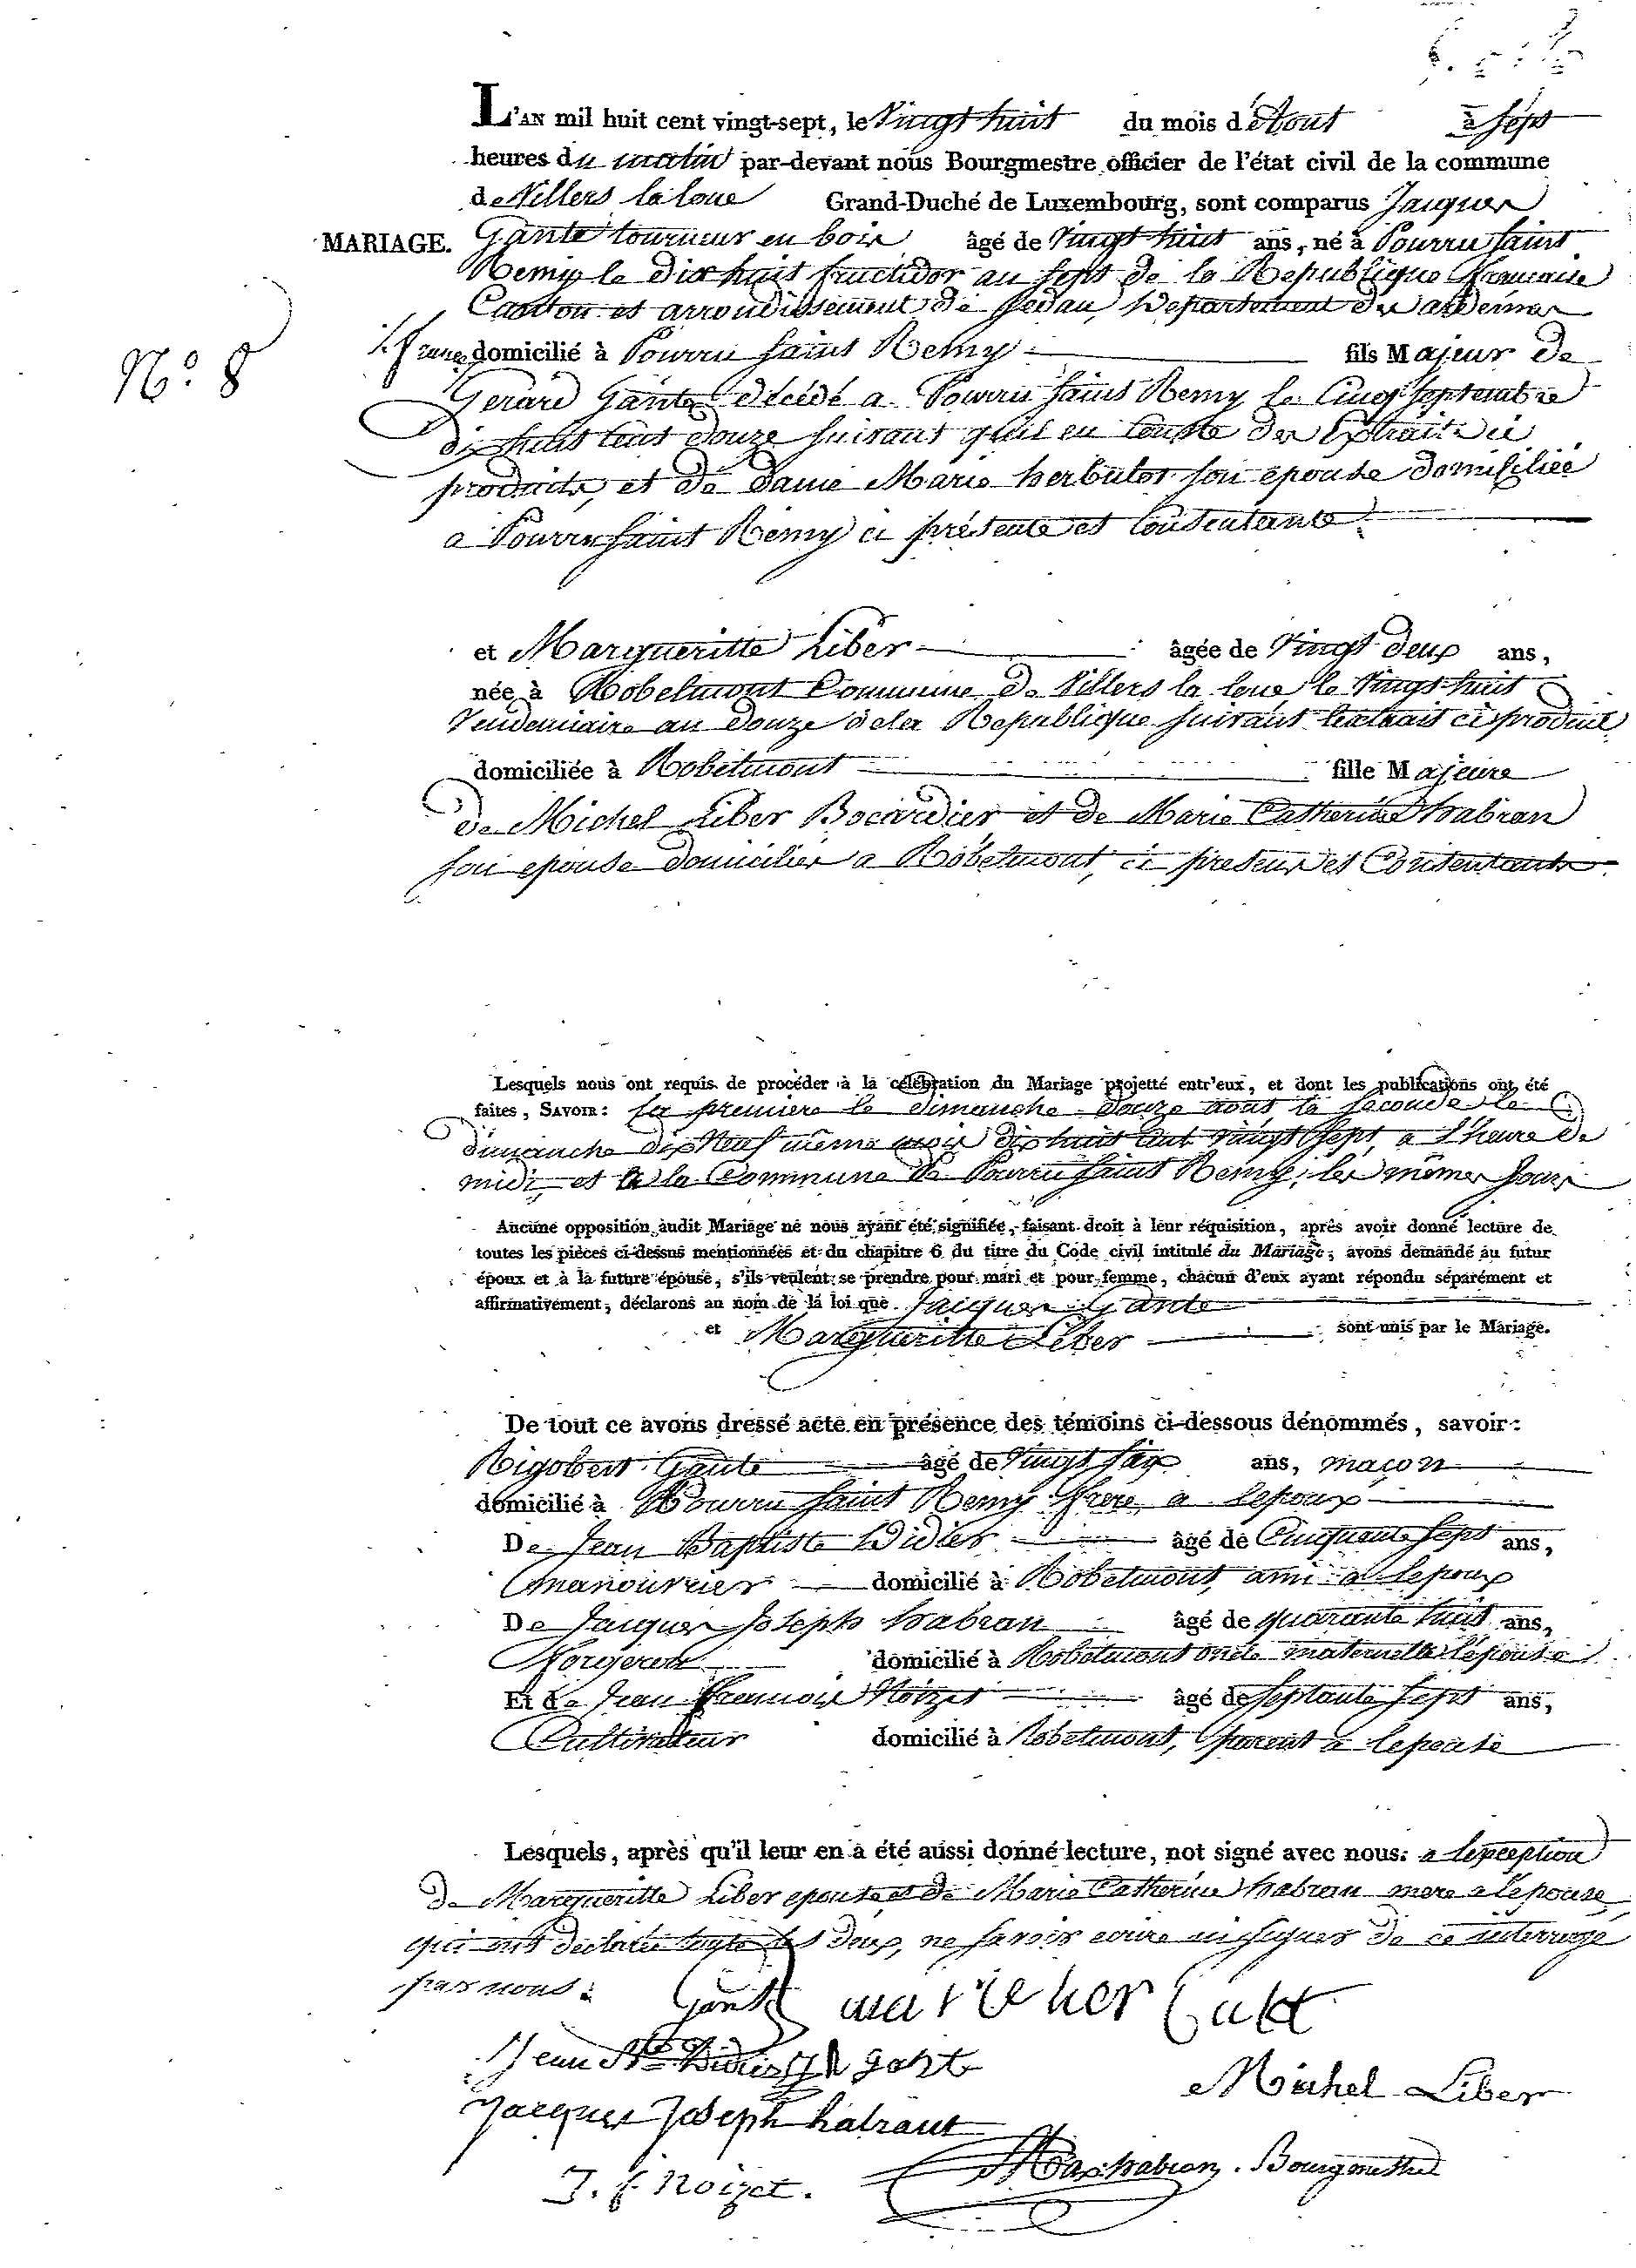 L'AN mil huit cent vingt-sept, le Vingt huit du mois d'Aout à Sept
heures du matin par-devant nous Bourgmestre officier de l'état civil de la commune
de Villers la loue Grand-Duché de Luxembourg, sont comparus Jacques
MARIAGE. Gante tourneur en bois âgé de Vingt huit ans, né à Pourru Saint
Remy le dix huit fructidor an Sept de la Republique francaise
Canton et arrondissement de Sedan, Departement des ardennes
N.º 8
france domicilié à Pourru Saint Remy fils Majeur de
Gerard Gante décédé a Pourru Saint Remy le Cinq Septembre
dix huit cent douze suivant qu'il en conste des Extraits ci
produits, et de dame Marie herbulot son epouse domiciliée
a Pourru Saint Remy ci présente et Consentante
et Margueritte Liber âgée de Vingt deux ans,
née à Robelmont Commune de Villers la loue le Vingt huit
Vendemiaire an douze de la Republique suivant lextrait ci produit
domiciliée à Robelmont fille Majeure
de Michel Liber Bocardier et de Marie Catherine habran
son epouse domiciliés a Robelmont, ci presens et Consentants
Lesquels nous ont requis de procéder à la célébration du Mariage projetté entr'eux, et dont les publications ont été
faites, SAVOIR: la premiere le dimanche douze aout la seconde le
dimanche dix Neuf même mois dix huit cent vingt Sept, a l'heure de
midi, et a la Commune de Pourru Saint Remy, les mêmes Jours
Aucune opposition audit Mariage ne nous ayant été signifiée, faisant droit à leur réquisition, après avoir donné lecture de
toutes les pièces ci-dessus mentionnées et du chapitre 6 du titre du Code civil intitulé du Mariage, avons demandé au futur
époux et à la future épouse, s'ils veulent se prendre pour mari et pour femme, chacun d'eux ayant répondu séparément et
affirmativement, déclarons au nom de la loi que Jacques Gante
et Margueritte Liber sont unis par le Mariage.
De tout ce avons dressé acte en présence des témoins ci-dessous dénommés, savoir:
Rigobert Gante âgé de Vingt Six ans, maçon
domicilié à Pourru Saint Remy frere a lepoux
De Jean Baptiste Didier âgé de Cinquante Sept ans,
manouvrier domicilié à Robelmont, ami a lepoux
De Jacques Joseph habran âgé de quarante huit ans,
Forgeron domicilié à Robelmont oncle maternelle a lépouse
Et de Jean Francois Noizet âgé de Septante Sept ans,
Cultivateur domicilié à Robelmont, parent a lepouse
Lesquels, après qu'il leur en a été aussi donné lecture, not signé avec nous: a lexception
de Margueritte Liber epouse et de Marie Catherine habran mere a lepouse,
qui ont déclaré toute les deux, ne savoir ecrire ni signer de ce interrogé
par nous.
Gante marie her bulot
Jean Bte Didier R gante
Michel Liber
Jacques Joseph habrant
habran. Bourgmestre
J. f. Noizet.